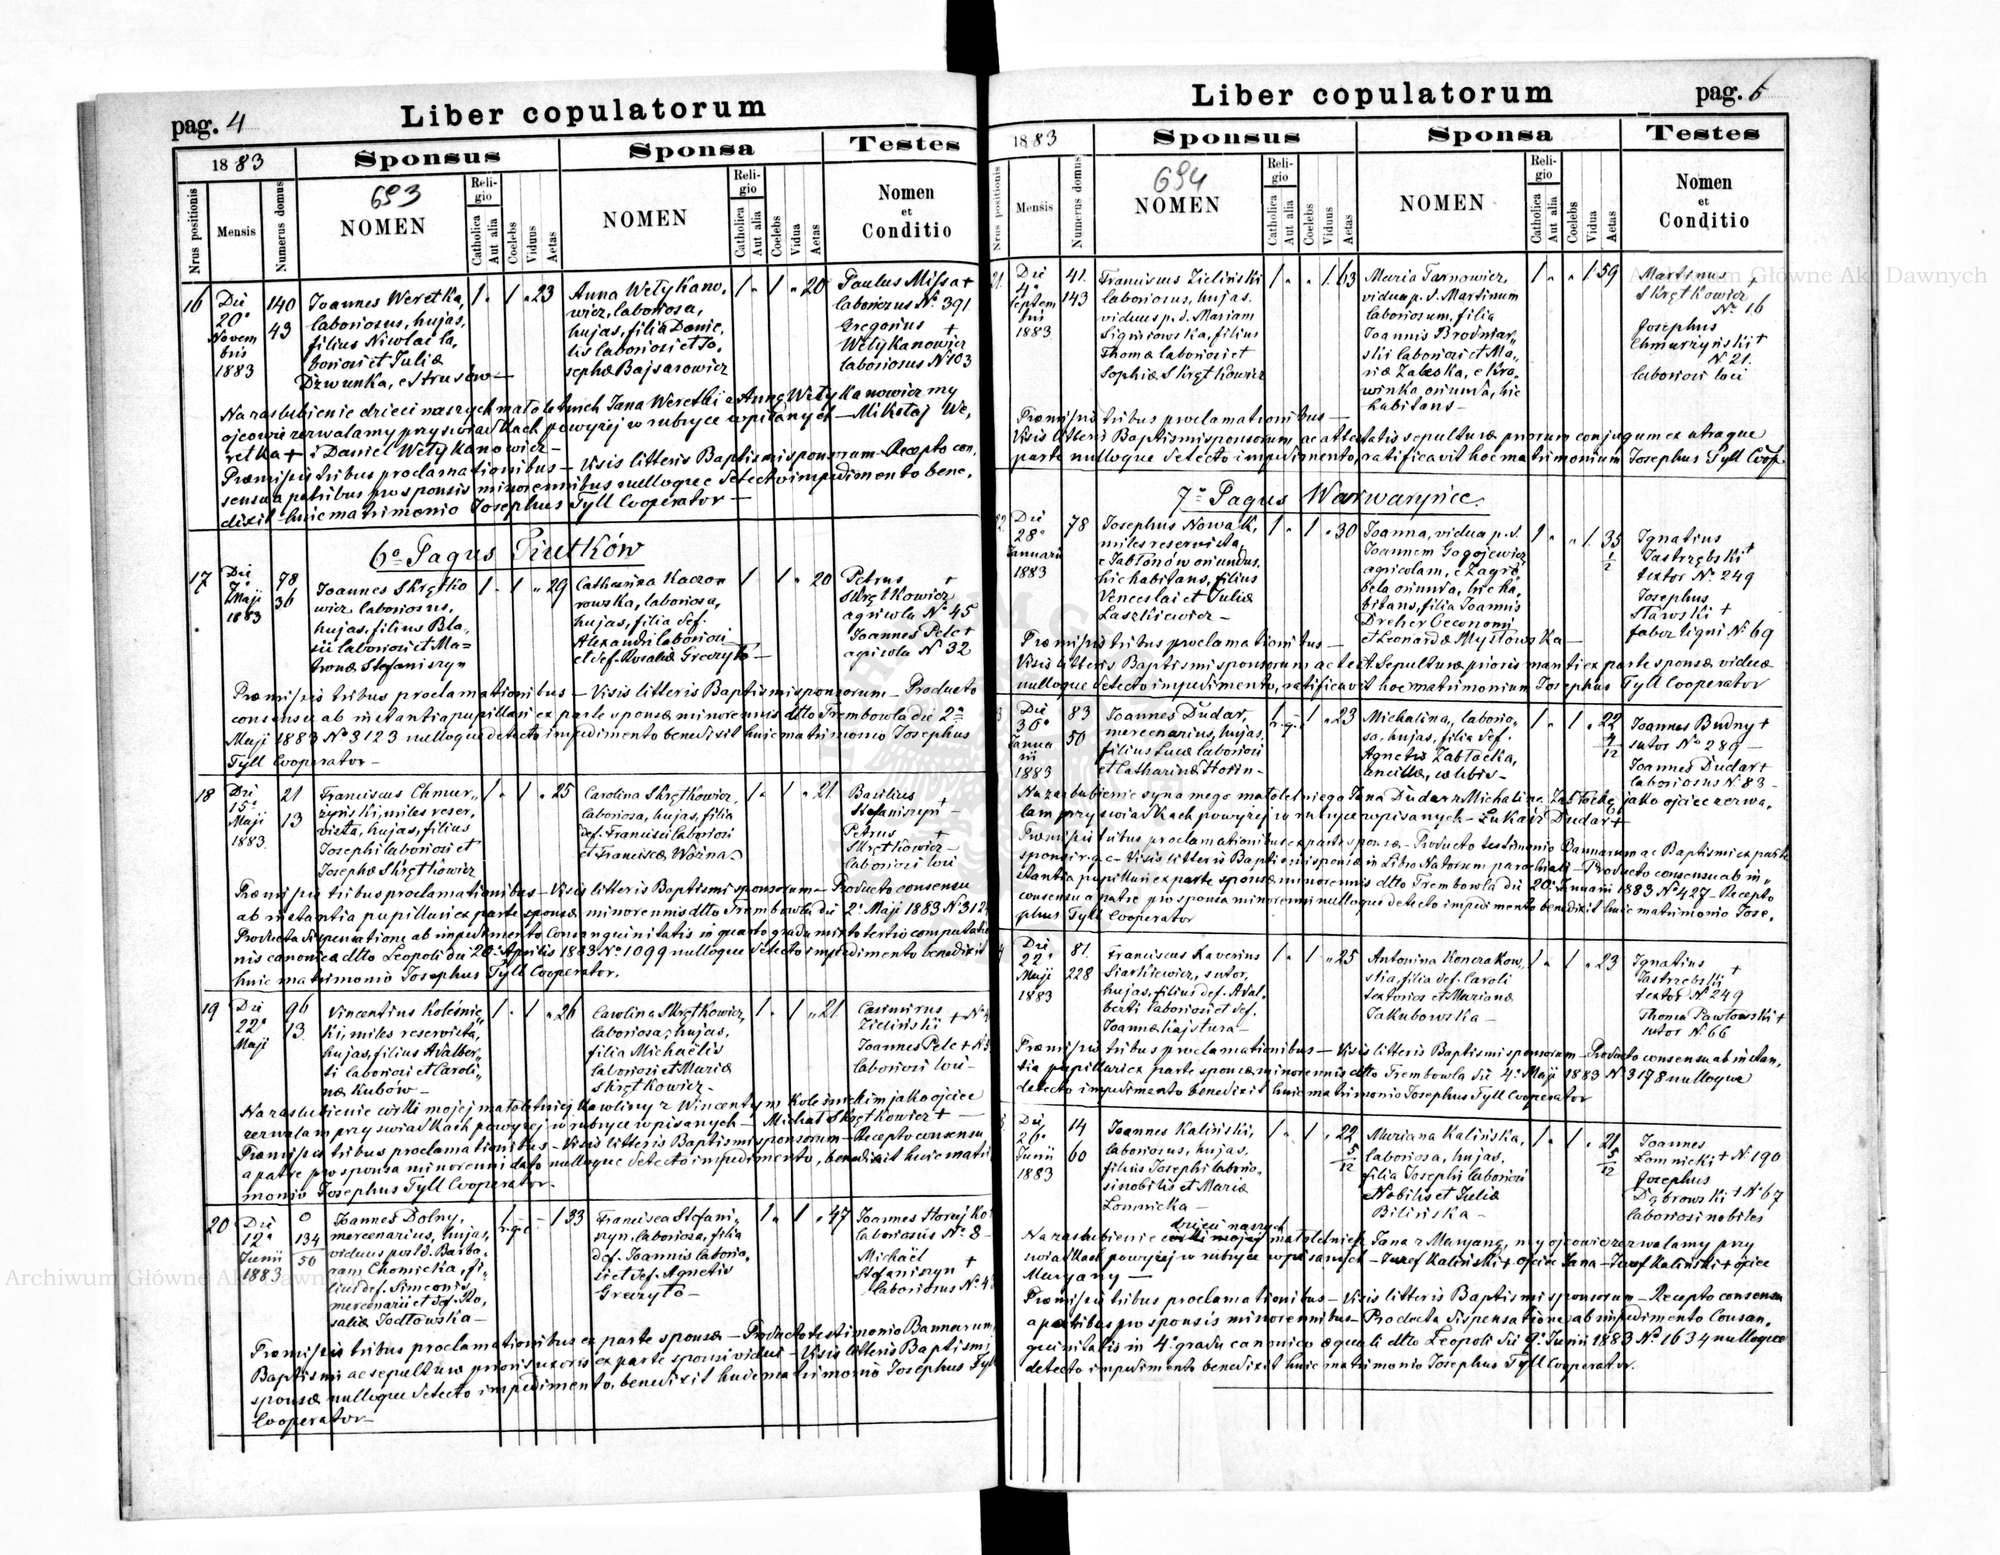 pag. 4
Liber copulatorum
1883
Sponsus
Sponsa
Testes
Nrus positionis
Mensis
Numerus domus
693
NOMEN
Religio
Catholica
Aut alia
Coelebs
Viduus
Aetas
NOMEN
Religio
Catholica
Aut alia
Coelebs
Vidua
Aetas
Nomen
et
Conditio
16
Die
20a
Novem
bris
1883
140
43
Joannes Weretka,
laboriosus, hujas,
filius Nicolai la,
boriosi et Juliæ
Dzwunka, e Strusów —
1 . 1 " 23
Anna Wetykano,
wicz, laboriosa,
hujas, filia Danie,
lis laboriosi et Jo,
sephæ Bajsarowicz
1 . 1 " 20
Paulus Missa +
laboriosus No 391
Gregorius +
Wetykanowicz
laboriosus No 103
Na zaslubienie dzieci naszych małoletnich Jana Weretki z Anną Wetykanowicz my
ojcowie zezwalamy przy swiadkach powyżej w rubryce wpisanych — Mikołaj We,
retka + i Daniel Wetykanowicz —
Præmissis tribus proclamationibus — Visis litteris Baptismi sponsorum — Recepto con,
sensu a patribus pro sponsis minorennibus nulloque detecto impedimento bene,
dixit huic matrimonio Josephus Tyll Cooperator —
6o Pagus Piutków
17
Die
7a
Maji
1883
78
36
Joannes Skrętko
wicz laboriosus,
hujas, filius Bla,
sii laboriosi et Ma=
tronæ Stefaniszyn
1 . 1 " 29
Catharina Kaczo
rowska, laboriosa,
hujas, filia def.
Alexandri laboriosi
et def. Rosaliæ Greczyto —
1 1 " 20
Petrus +
Skrętkowicz
agricola No 45
Joannes Pele +
agricola No 32
Præmissis tribus proclamationibus — Visis litteris Baptismi sponsorum — Producto
consensu ab instantia pupillari ex parte sponsæ minorennis dtto Trembowla die 2a
Maji 1883 No 3123 nulloque detecto impedimento benedixit huic matrimonio Josephus
Tyll Cooperator —
18
Die
15a
Maji
1883
21
13
Franciscus Chmur,,
zyński, miles reser,
vista, hujas, filius
Josephi laboriosi et
Josephæ Skrętkowicz
1 . 1 " 25
Carolina Skrętkowicz,
laboriosa, hujas, filia
def. Francisci laboriosi
et Franciscæ Woźna —
1 . 1 " 21
Basilius +
Stefaniszyn —
Petrus +
Skrętkowicz —
laboriosi loci
Præmissis tribus proclamationibus — Visis litteris Baptismi sponsorum — Producto consensu
ab instantia pupillari ex parte sponsæ minorennis dtto Trembowla die 2a Maji 1883 No 312
Producta dispensatione ab impedimento Consanguinitatis in quarto gradu mixto tertio computatio
nis canonica dtto Leopoli die 20a Aprilis 1883 No 1099 nulloque detecto impedimento benedixit
huic matrimonio Josephus Tyll Cooperator.
19
Die
22a
Maji
96
13
Vincentius Koleśnic,,
ki, miles reservista,
hujas, filius Adalber,,
ti laboriosi et Caroli,,
næ Kubów —
1 . 1 " 26
Carolina Skrętkowicz,
laboriosa, hujas,
filia Michaëlis
laboriosi et Mariæ
Skrętkowicz —
1 . 1 " 21
Casimirus
Zieliński + No
Joannes Pele + No
laboriosi loci —
Na zaslubienie córki mojej małoletniej Karoliny z Wincentym Kolesnickim jako ojciec
zezwalam przy swiadkach powyżej w rubryce wpisanych — Michał Skrętkowicz + —
Præmissis tribus proclamationibus — Visis litteris Baptismi sponsorum — Recepto consensu
a patre pro sponsa minorenni dato nulloque detecto impedimento, benedixit huic matri
monio Josephus Tyll Cooperator.
20
Die
12a
Junii
1883
134
50
Joannes Dolny,
mercenarius, hujas,
viduus post d. Barba,
ram Chomicka, fi,
lius def. Simeonis
mercenarii et def. Ro,
saliæ Sodtowska —
r.g.c. — 1 33
Francisca Stefani,,
szyn, laboriosa, filia
def. Joannis laborio,
si et def. Agnetis
Greczyto —
1 . 1 " 47
Joannes Horyj Ko
laboriosus No 8 —
Michaël
Stefaniszyn +
laboriosus No 4
Præmissis tribus proclamationibus ex parte sponsæ — Producto testimonio Bannorum,
Baptismi ac sepulturæ prioris uxoris ex parte sponsi vidui — Visis litteris Baptismi
sponsæ nulloque detecto impedimento, benedixit huic matrimonio Josephus Tyll
Cooperator —
Liber copulatorum
pag. 5
1883
Sponsus
Sponsa
Testes
Nrus positionis
Mensis
Numerus domus
694
NOMEN
Religio
Catholica
Aut alia
Coelebs
Viduus
Aetas
NOMEN
Religio
Catholica
Aut alia
Coelebs
Vidua
Aetas
Nomen
et
Conditio
21.
Die
4a
Septem
bris
1883
41.
143
Franciscus Zieliński
laboriosus, hujas.
viduus p. d. Mariam
Signiowska, filius
Thomæ laboriosi et
Sophiæ Skrętkowicz
1 " " 1. 63
Maria Tarnowicz,
vidua p. d. Martinum
laboriosum, filia
Joannis Brodniar,,
ski laboriosi et Ma,,
riæ Zaleska, e Bro,
winka oriunda, hic
habitans —
1 " " 1. 59
Martinus
Skrętkowicz +
No 16
Josephus
Chmurzyński +
No 21.
laboriosi loci
Præmissis tribus proclamationibus —
Visis litteris Baptismi sponsorum, ac attestatis sepulturæ priorum conjugum ex utraque
parte nulloque detecto impedimento, ratificavit hoc matrimonium Josephus Tyll Coop.
7o Pagus Warwaryńce.
22.
Die
28a
Januarii
1883
78
Josephus Nowak,
miles reservista,
e Jabłonów oriundus,
hic habitans, filius
Venceslai et Juliæ
Laszkiewicz —
1 " 1 " 30
Joanna, vidua p. d.
Joannem Gogojewicz
agricolam, e Zagro,,
bela oriunda, hic ha,
bitans, filia Joannis
Dreher Oeconomi
et Leonardæ Mystowska —
1 " " 1. 35 1/2
Ignatius
Jastrzębski +
textor No 249
Josephus
Stawski +
faber ligni No 69
Præmissis tribus proclamationibus —
Visis litteris Baptismi sponsorum ac test. Sepulturæ prioris mariti ex parte sponsæ viduæ
nulloque detecto impedimento, ratificavit hoc matrimonium Josephus Tyll Cooperator
Die
30a
Janua
rii
1883
83
50
Joannes Dudar,
mercenarius, hujas,
filius Lucæ laboriosi
et Catharinæ Horin —
r.g.c. 1 " 23
Michalina, laborio,
sa, hujas, filia def.
Agnetis Zabłocka,
ancillæ, cælibis —
1 " 1 " 22 4/12
Joannes Budny +
sutor No 289 —
Joannes Dudar +
laboriosus No 83 —
Na zaslubienie syna mego małoletniego Jana Dudar z Michaliną Zabłocką, jako ojciec zezwa,
lam przy swiadkach powyżej w rubryce wpisanych — Łukasz Dudar +
Præmissis tribus proclamationibus ex parte sponsæ — Producto testimonio Bannorum ac Baptismi ex parte
sponsi r.g.c. — Visis litteris Baptismi sponsæ in Libro Natorum parochiali — Producto consensu ab in,,
stantia pupillari ex parte sponsæ minorennis dtto Trembowla die 20a Januarii 1883 No 427 — Recepto
consensu a patre pro sponso minorenni nulloque detecto impedimento benedixit huic matrimonio Jose,
phus Tyll Cooperator
Die
22a
Maji
1883
81.
228
Franciscus Xaverius
Siarkiewicz, sutor,
hujas, filius def. Adal,
berti laboriosi et def.
Joannæ Kajstura —
1 " 1 " 25
Antonina Konczakow,
ska, filia def. Caroli
textoris et Marianæ
Jakubowska —
1 " 1 " 23
Ignatius +
Jastrzębski
textor No 249
Thoma Pawłowski +
sutor No 66
Præmissis tribus proclamationibus — Visis litteris Baptismi sponsorum — Producto consensu ab instan,
tia pupillari ex parte sponsæ minorennis dtto Trembowla die 4a Maji 1883 No 3178 nulloque
detecto impedimento benedixit huic matrimonio Josephus Tyll Cooperator
Die
26a
Junii
1883
14
60
Joannes Kaliński,
laboriosus, hujas,
filius Josephi laborio,
si nobilis et Mariæ
Łomnicka —
1 " 1 " 22 5/12
Mariana Kalińska,
laboriosa, hujas,
filia Josephi laboriosi
Nobilis et Juliæ
Bilińska —
1 " 1 " 21 5/12
Joannes
Łomnicki + No 190
Josephus
Dąbrowski + No 67
laboriosi nobiles
Na zaslubienie dzieci naszych małoletnich Jana z Maryaną, my ojcowie zezwalamy przy
swiadkach powyżej w rubryce wpisanych — Jozef Kaliński + ojciec Jana — Jozef Kaliński + ojciec
Maryany —
Præmissis tribus proclamationibus — Visis litteris Baptismi sponsorum — Recepto consensu
a patribus pro sponsis minorennibus — Producta dispensatione ab impedimento Consan,
guinitatis in 4o gradu canonico æquali dtto Leopoli die 9a Junii 1883 No 1634 nulloque
detecto impedimento benedixit huic matrimonio Josephus Tyll Cooperator.
Archiwum Główne Akt Dawnych
Archiwum Główne Akt Dawnych